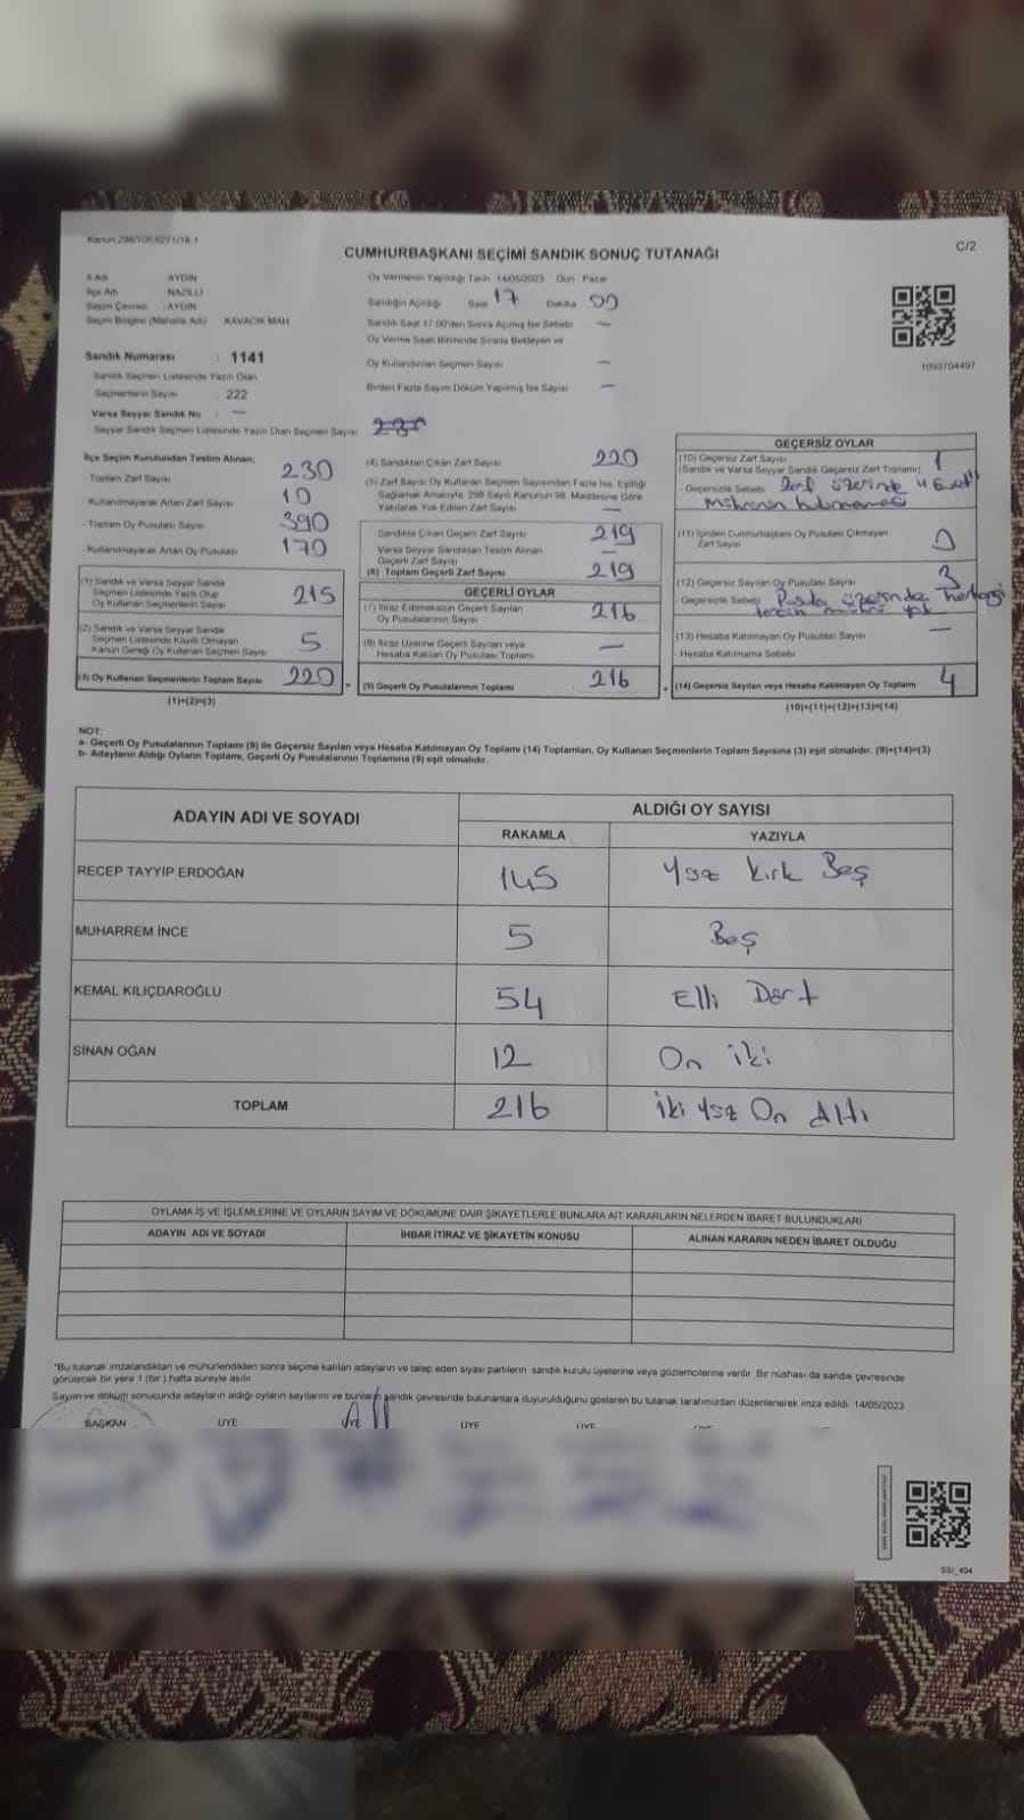 Kanun:298/105 1
C/2
CUMHURBAŞKANI SEÇİMİ SANDIK SONUÇ TUTANAĞI
İl Adı AYDIN
İlçe Adı NAZİLLİ
Seçim Çevresi : AYDIN
Seçim Bölgesi (Mahalle Adı) KAVACIK MAH
Sandık Numarası : 1141
Sandık Seçmen Listesinde Yazılı Olan
Seçmenlerin Sayısı 222
Varsa Seyyar Sandık No : —
Seyyar Sandık Seçmen Listesinde Yazılı Olan Seçmen Sayısı
Oy Vermenin Yapıldığı Tarih 14/05/2023 Gün Pazar
Sandığın Açıldığı Saat 17 Dakika 00
Sandık Saat 17.00'den Sonra Açılmış İse Sebebi —
Oy Verme Saati Bitiminde Sırada Bekleyen ve
Oy Kullandırılan Seçmen Sayısı —
Birden Fazla Sayım Döküm Yapılmış İse Sayısı —
1093704497
İlçe Seçim Kurulundan Teslim Alınan;
- Toplam Zarf Sayısı 230
- Kullanılmayarak Artan Zarf Sayısı 10
- Toplam Oy Pusulası Sayısı 390
- Kullanılmayarak Artan Oy Pusulası 170
(1) Sandık ve Varsa Seyyar Sandık
Seçmen Listesinde Yazılı Olup
Oy Kullanan Seçmenlerin Sayısı 215
(2) Sandık ve Varsa Seyyar Sandık
Seçmen Listesinde Kayıtlı Olmayan
Kanun Gereği Oy Kullanan Seçmen Sayısı 5
(3) Oy Kullanan Seçmenlerin Toplam Sayısı 220
(1)+(2)=(3)
(4) Sandıktan Çıkan Zarf Sayısı 220
(5) Zarf Sayısı Oy Kullanan Seçmen Sayısından Fazla İse, Eşitliği
Sağlamak Amacıyla, 298 Sayılı Kanunun 98. Maddesine Göre
Yakılarak Yok Edilen Zarf Sayısı —
Sandıkta Çıkan Geçerli Zarf Sayısı 219
Varsa Seyyar Sandıktan Teslim Alınan
Geçerli Zarf Sayısı —
(6) Toplam Geçerli Zarf Sayısı 219
GEÇERLİ OYLAR
(7) İtiraz Edilmeksizin Geçerli Sayılan
Oy Pusulalarının Sayısı 216
(8) İtiraz Üzerine Geçerli Sayılan veya
Hesaba Katılan Oy Pusulası Toplamı —
(9) Geçerli Oy Pusulalarının Toplamı 216
GEÇERSİZ OYLAR
(10) Geçersiz Zarf Sayısı
(Sandık ve Varsa Seyyar Sandık Geçersiz Zarf Toplamı) 1
- Geçersizlik Sebebi Zarf üzerinde "Evet"
Mührünün bulunmaması
(11) İçinden Cumhurbaşkanı Oy Pusulası Çıkmayan
Zarf Sayısı 0
(12) Geçersiz Sayılan Oy Pusulası Sayısı 3
Geçersizlik Sebebi Pusula üzerinde herhangi
tercih mührü yok
(13) Hesaba Katılmayan Oy Pusulası Sayısı —
- Hesaba Katılmama Sebebi
(14) Geçersiz Sayılan veya Hesaba Katılmayan Oy Toplamı 4
(10)+(11)+(12)+(13)=(14)
NOT:
a- Geçerli Oy Pusulalarının Toplamı (9) ile Geçersiz Sayılan veya Hesaba Katılmayan Oy Toplamı (14) Toplamları, Oy Kullanan Seçmenlerin Toplam Sayısına (3) eşit olmalıdır. (9)+(14)=(3)
b- Adayların Aldığı Oyların Toplamı, Geçerli Oy Pusulalarının Toplamına (9) eşit olmalıdır.
ADAYIN ADI VE SOYADI ALDIĞI OY SAYISI
RAKAMLA YAZIYLA
RECEP TAYYİP ERDOĞAN 145 Yüz Kırk Beş
MUHARREM İNCE 5 Beş
KEMAL KILIÇDAROĞLU 54 Elli Dört
SİNAN OĞAN 12 On iki
TOPLAM 216 iki yüz On Altı
OYLAMA İŞ VE İŞLEMLERİNE VE OYLARIN SAYIM VE DÖKÜMÜNE DAİR ŞİKAYETLERLE BUNLARA AİT KARARLARIN NELERDEN İBARET BULUNDUKLARI
ADAYIN ADI VE SOYADI İHBAR İTİRAZ VE ŞİKAYETİN KONUSU ALINAN KARARIN NEDEN İBARET OLDUĞU
*Bu tutanak imzalandıktan ve mühürlendikten sonra seçime katılan adayların ve talep eden siyasi partilerin sandık kurulu üyelerine veya gözlemcilerine verilir. Bir nüshası da sandık çevresinde
görülecek bir yere 1 (bir) hafta süreyle asılır.
Sayım ve döküm sonucunda adayların aldığı oyların sayılarını ve bunların sandık çevresinde bulunanlara duyurulduğunu gösteren bu tutanak tarafımızdan düzenlenerek imza edildi. 14/05/2023
BAŞKAN ÜYE ÜYE ÜYE ÜYE
SSI_404